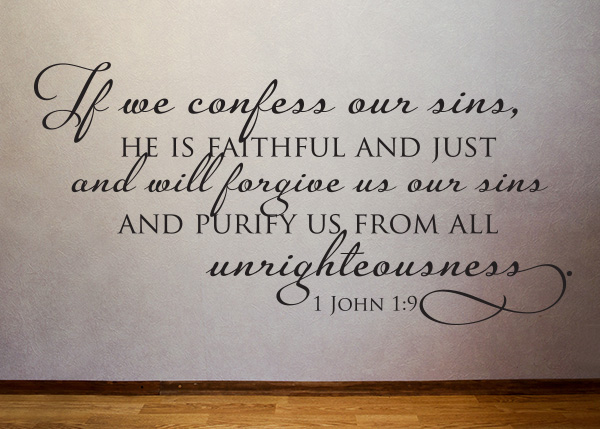 If we confess our sins,
HE IS FAITHFUL AND JUST
and will forgive us our sins
AND PURIFY US FROM ALL
unrighteousness.
1 JOHN 1:9